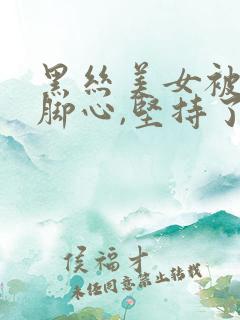 黑丝美女被
脚心,坚持了
侯福才
未经同意禁止转载